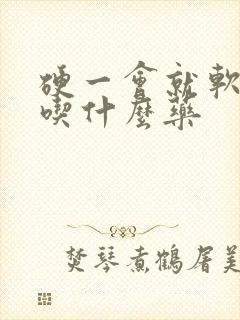 硬一會就軟
喫什麼藥
焚琴煮鶴屠美